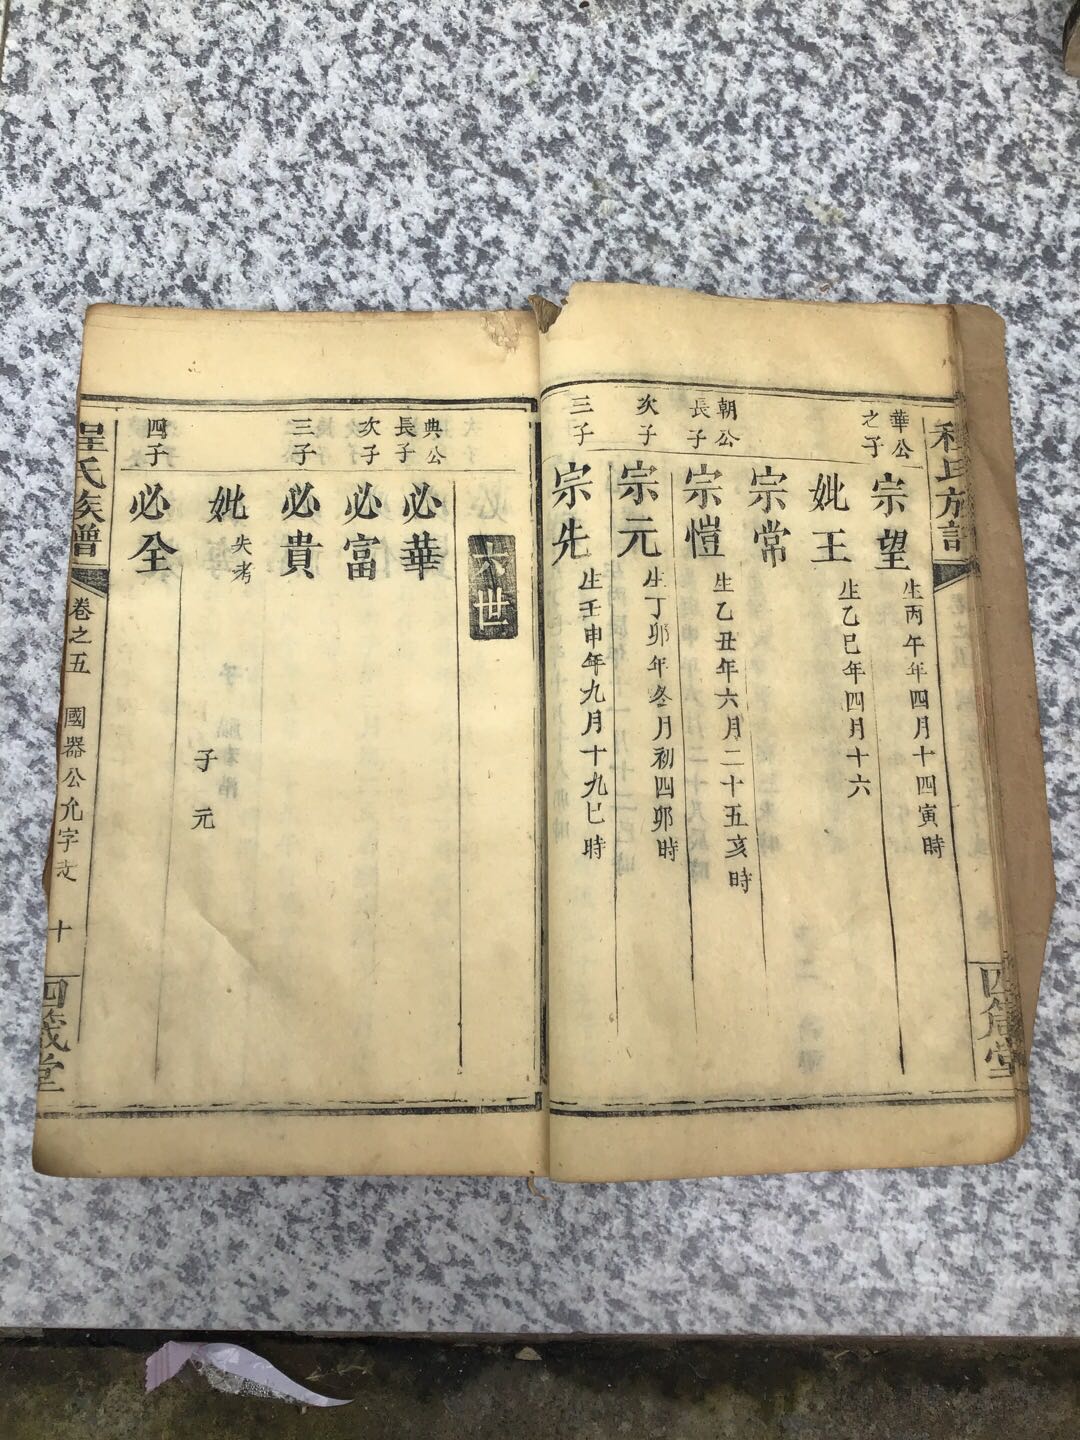 程氏族譜
四箴堂
華公之子
宗望 生丙午年四月十四寅時
妣王 生乙巳年四月十六
宗常
朝公長子
宗愷 生乙丑年六月二十五亥時
次子
宗元 生丁卯年冬月初四卯時
三子
宗先 生壬申年九月十九巳時
六世
典公長子
必華
次子
必富
三子
必貴
妣失考 子 元
四子
必全
程氏族譜 卷之五 國器公允字支 十 四箴堂